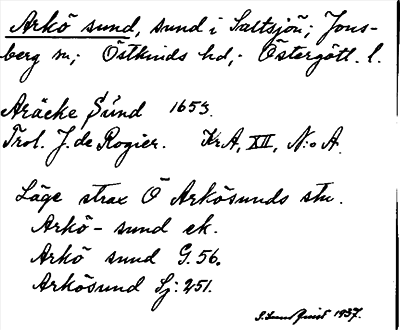 Arkö sund, sund i Saltsjön; Jons-
berg sn; Östkinds hd; Östergötl. l.
Aräcke Sund 1653.
Trol. J. de Rogier. KrA, XII, N:o A.
Läge strax Ö Arkösunds stn.
Arkö - sund ek.
Arkö sund G. 56.
Arkösund Sj: 251.
1937.